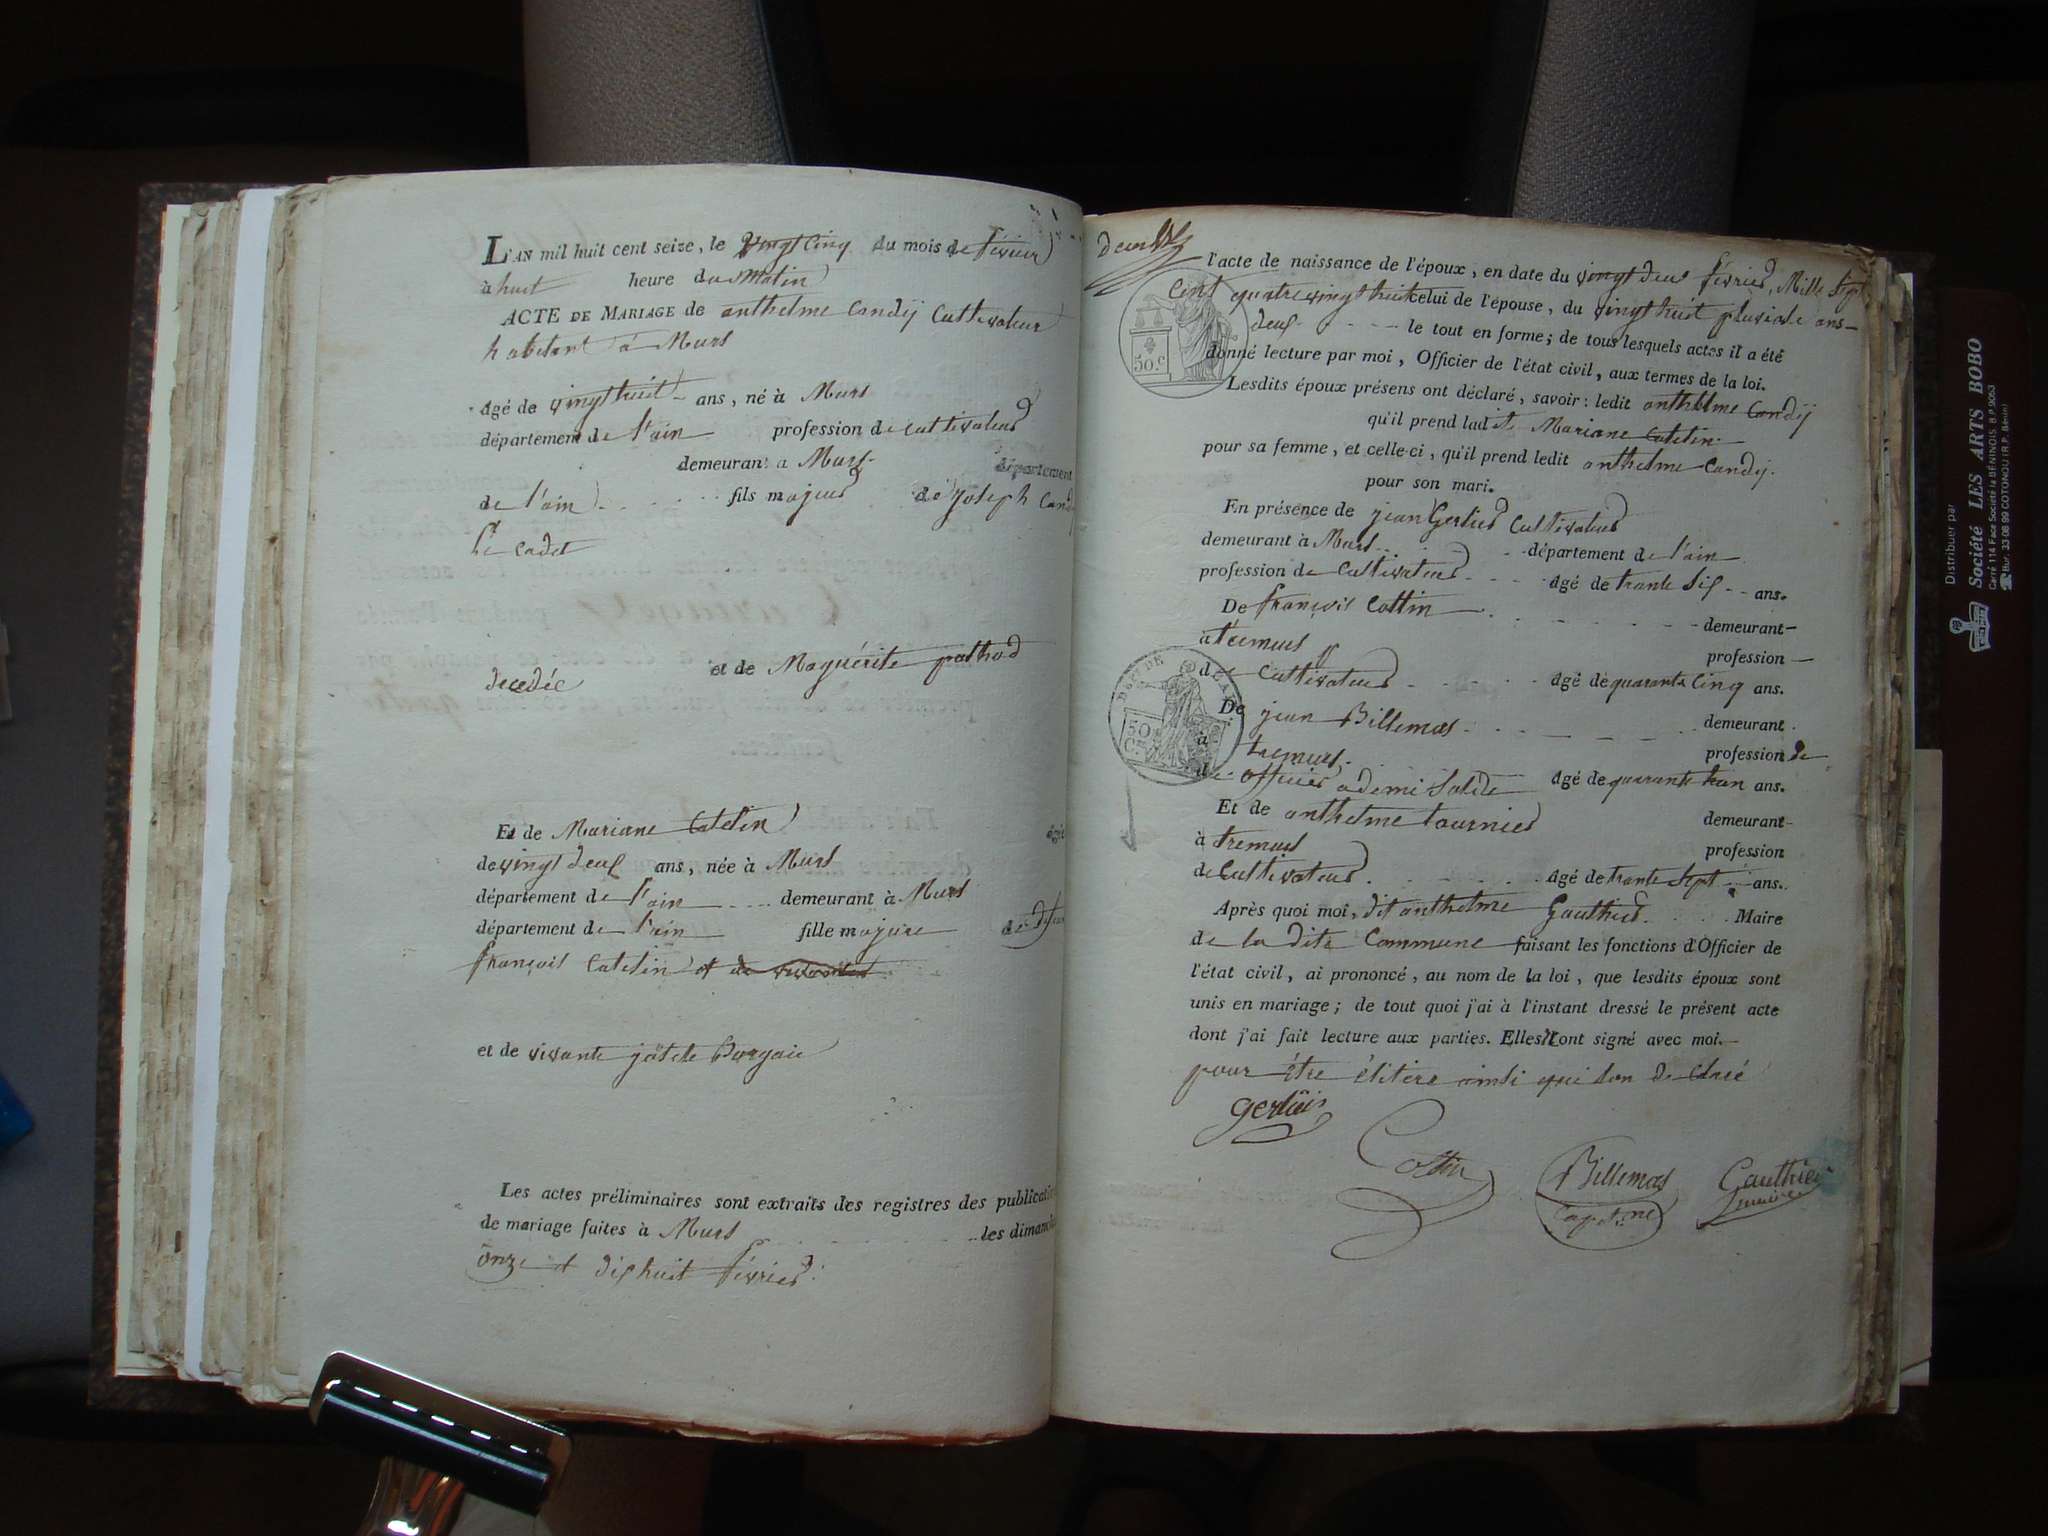 L'AN mil huit cent seize, le vingt Cinq du mois de février
à huit heure du matin
ACTE DE MARIAGE de anthelme Candij Cultivateur
habitant à Murs
agé de vingt huit ans, né à Murs
département de l'ain profession de cultivateur
demeurant a Murs département
de l'ain fils majeur de joseph Candij
Le Cadet
et de Maguérite pathod
decedée
Et de Mariane Catelin agée
de vingt deux ans, née à Murs
département de l'ain demeurant à Murs
département de l'ain fille majure
françois Catelin et de
et de vivante
Les actes préliminaires sont extraits des registres des publications
de mariage faites à Murs les dimanches
onze et dix huit février
l'acte de naissance de l'époux, en date du vingt deux février, Mille Sept
Cent quatre vingt huit celui de l'épouse, du vingt huit pluviose ans
deux le tout en forme; de tous lesquels actes il a été
donné lecture par moi, Officier de l'état civil, aux termes de la loi.
Lesdits époux présens ont déclaré, savoir: ledit anthelme Candij
qu'il prend ladite Mariane Catelin
pour sa femme, et celle-ci, qu'il prend ledit anthelme Candij.
pour son mari.
En présence de jean Gerlier Cultivateur
demeurant à Murs département de l'ain
profession de Cultivateur agé de trante Six ans.
De françois Cottin demeurant
à tremurs profession
de Cultivateur agé de quarante Cinq ans.
De jean Billemas demeurant
à tremurs profession de
de officier ademi Solde agé de quarante ans.
Et de anthelme tournier demeurant
à tremurs profession
de Cultivateur agé de trante Sept ans.
Après quoi moi, dit anthelme Gauthier Maire
de la dite Commune faisant les fonctions d'Officier de
l'état civil, ai prononcé, au nom de la loi, que lesdits époux sont
unis en mariage; de tout quoi j'ai à l'instant dressé le présent acte
dont j'ai fait lecture aux parties. Elles ont signé avec moi.
pour être éliterè ainsi qui Son De Claré
Gerlier
Cottin Billemas Gauthier
Capitaine maire
50 c
50
C.
Distribuer par
Société LES ARTS BOBO